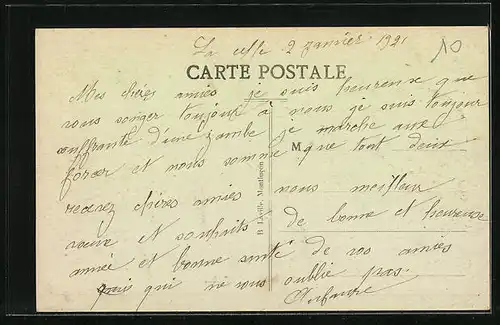 La celle 2 janvier 1921
10
CARTE POSTALE
Mes chères amies je suis heureuse que
vous songer toujours à nous je suis toujour
souffrante d'une jambe je marche aux
forcer et nous somme que tout deux
M
recevez chères amies nous meilleur
vœux et souhaits de bonne et heureuse
année et bonne santé de vos amies
qui ne vous oublie pas.
B. Laville, Montluçon